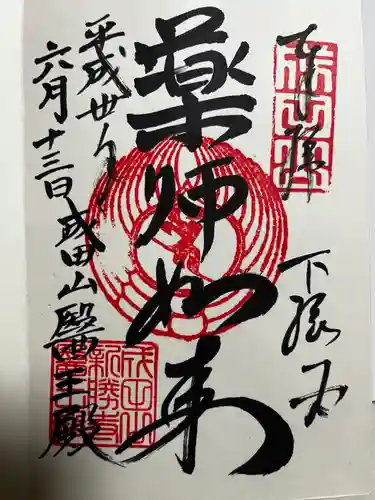 奉拝
下総国
薬師如来
平成卅年
六月十三日成田山醫王殿
成田山
新勝寺